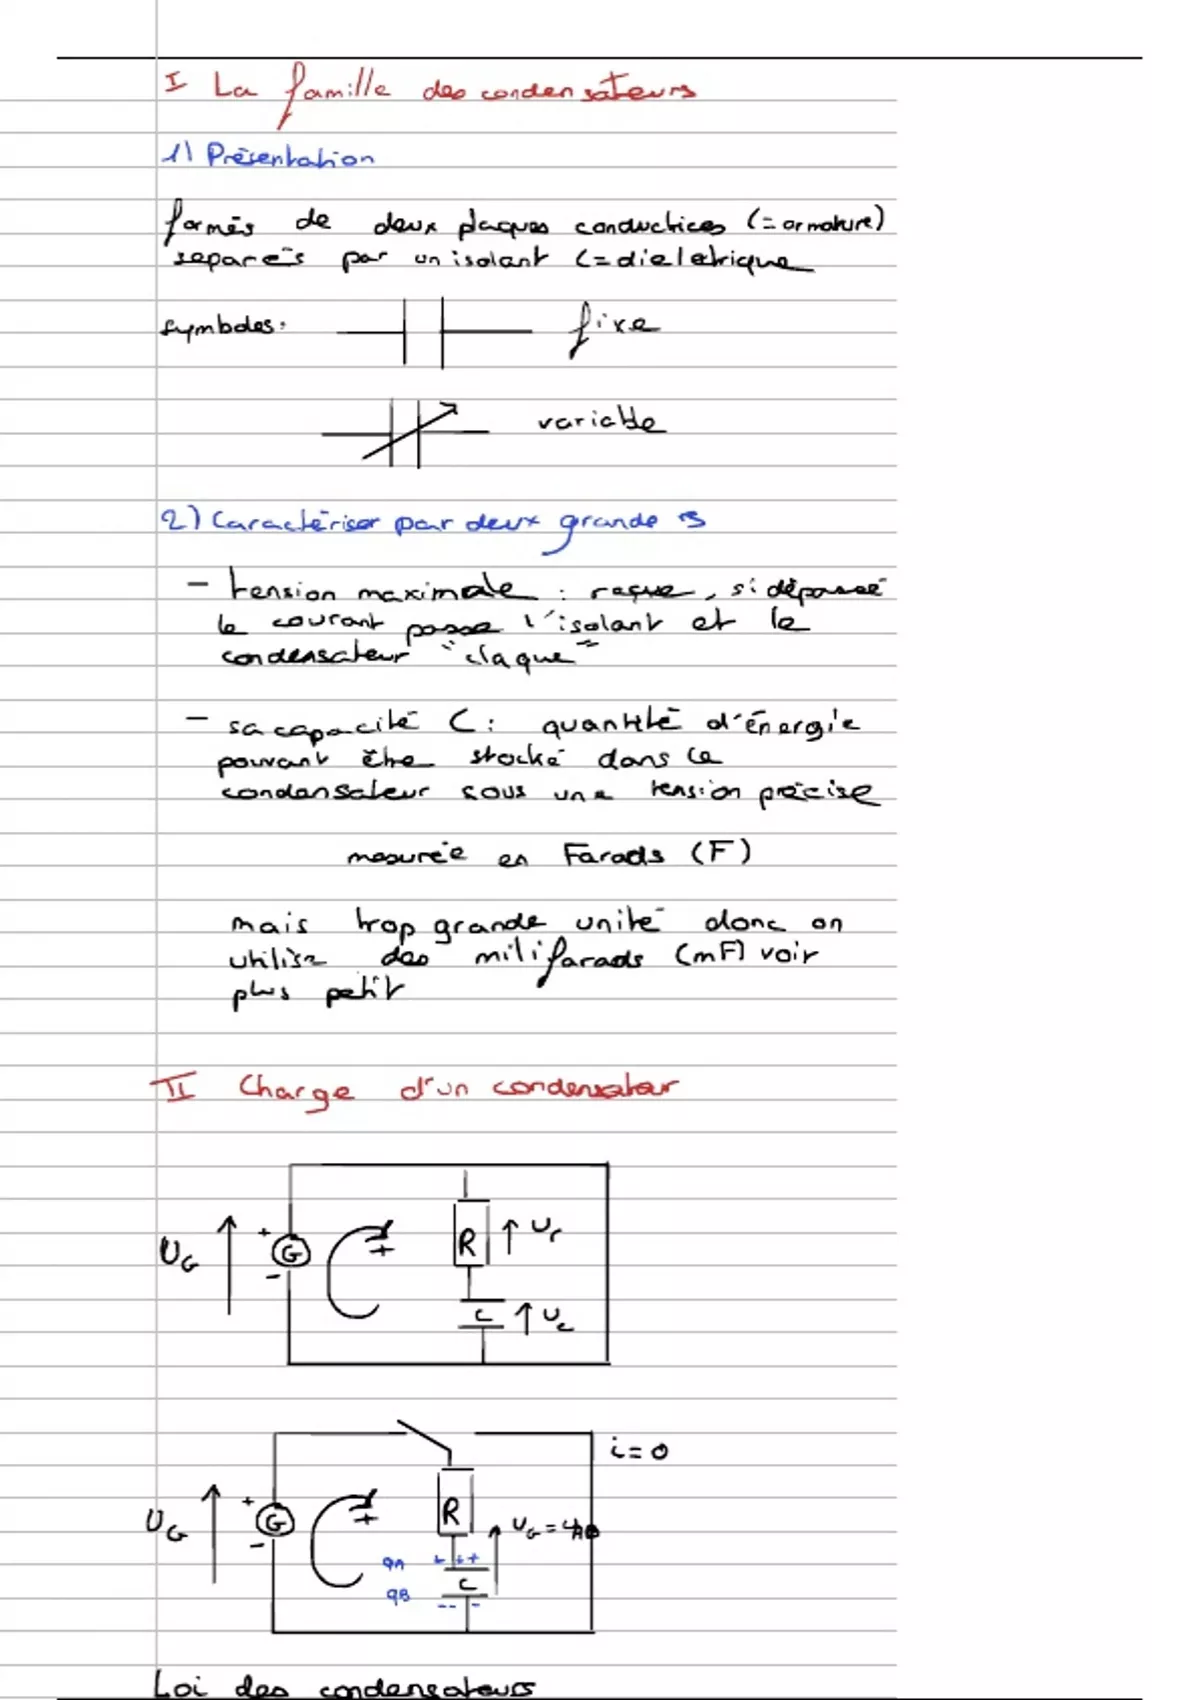 I La famille des condensateurs
1) Présentation
formés de deux plaques conductrices (= armature)
separés par un isolant (= dieletrique
symboles: fixe
variable
2) Caractériser par deux grande s
- tension maximale : reçue, si dépassé
le courant passe l'isolant et le
condensateur "claque"
- sa capacité C : quantité d'énergie
pouvant être stocké dans le
condensateur sous une tension précise
mesurée en Farads (F)
mais trop grande unité donc on
utilise des milifarads (mF) voir
plus petit
II Charge d'un condensateur
UG + G - + R Ur
C Uc
i = 0
UG + G - + R
UG =
qA + + +
C
qB -- -
Loi des condensateurs